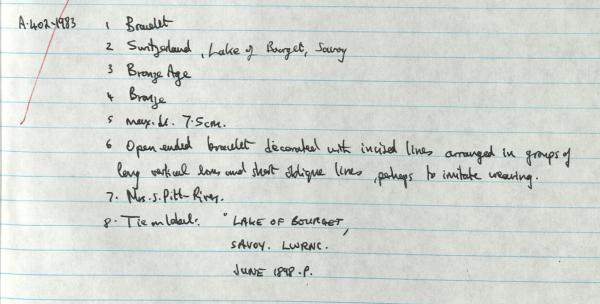 A.402-1983 1 Bracelet
2 Switzerland, Lake of Bourget, Savoy
3 Bronze Age
4 Bronze
5 max. di. 7.5cm.
6 Open ended bracelet decorated with incised lines arranged in groups of
long vertical lines and short oblique lines, perhaps to imitate weaving.
7. Mrs. S. Pitt-Rivers.
8. Tie on label: "LAKE OF BOURGET,
SAVOY. LWRNC.
JUNE 1898.P.